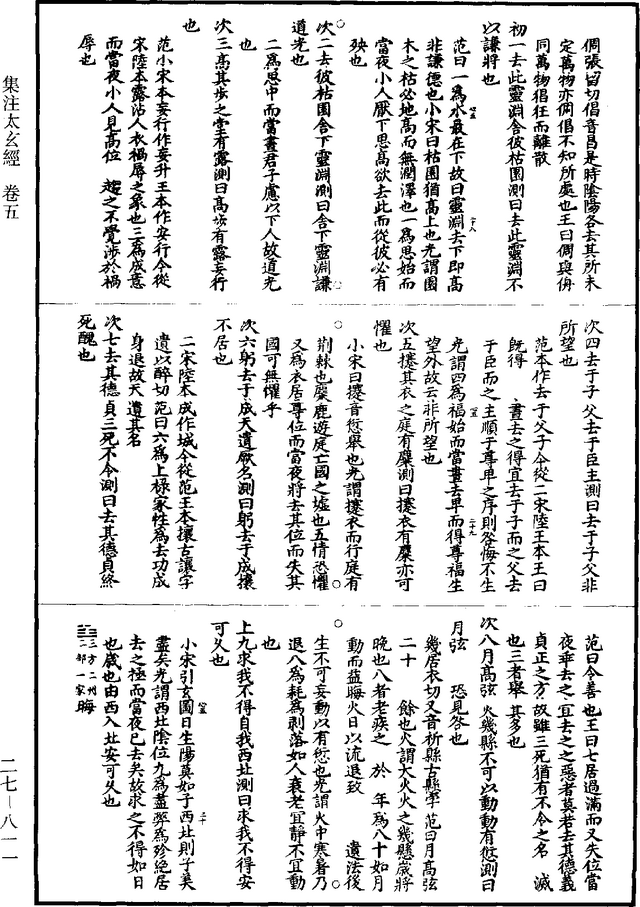 集注太玄經　卷五
二七-八一一
倜張留切倡音昌是時陰陽各去其所未
定萬物亦倜倡不知所處也王曰倜與侜
同萬物倡狂而離散
初一去此靈淵舍彼枯園測曰去此靈淵不
以謙將也
范曰一為水最在下故曰靈淵去下即高
非謙德也小宋曰枯園猶高上也光謂園
木之枯必地高而無潤澤也一為思始而
當夜小人厭下思高欲去此而從彼必有
殃也
次二去彼枯園舍下靈淵測曰舍下靈淵謙
道光也
二為思中而當晝君子慮以下人故道光
也
次三高其步之堂有露測曰高步有露妄行
也
范小宋本妄行作妄升王本作安行今從
宋陸本露沾人衣禍辱之象也三為成意
而當夜小人見高位　趨之不覺涉於禍
辱也
次四去于子父去于臣主測曰去于子父非
所望也
范本作去于父子今從二宋陸王本王曰
旣得　晝去之得宜去于子而之父去
于臣而之主順于尊卑之序則咎悔不生
光謂四為福始而當晝去卑而得尊福生
望外故云非所望也
次五攓其衣之庭有麋測曰攓衣有麋亦可
懼也
小宋曰攓音愆舉也光謂攓衣而行庭有
荆棘也麋鹿遊庭亡國之墟也五情恐懼
又為衣居尊位而當夜將去其位而失其
國可無懼乎
次六躬去于成天遺厥名測曰躬去于成攘
不居也
二宋陸本成作城今從范王本攘古讓字
遺以醉切范曰六為上祿家性為去功成
身退故天遺其名
次七去其德貞三死不令測曰去其德貞終
死醜也
范曰令善也王曰七居過滿而又失位當
夜乖去之宜去之之惡者莫若去其德義
貞正之方故雖三死猶有不令之名　滅
也三者舉　其多也
次八月高弦火幾縣不可以動動有愆測曰
月弦　恐見咎也
幾居衣切又音祈縣古縣字范曰月高弦
二十　餘也火謂大火火之幾懸歲將
晚也八者老疾之　於　年為八十如月
動而益晦火日以流退致　遺法後
生不可妄動以有愆也光謂火中寒暑乃
退八為耗為剥落如人衰老宜静不宜動
也
上九求我不得自我西北測曰求我不得安
可乆也
小宋引玄圖曰生陽莫如子西北則子美
盡矣光謂西北陰位九為盡弊為殄絶居
去之極而當夜已去矣故求之不得如日
也歲也由西入北安可乆也
三方二州
二部一家晦